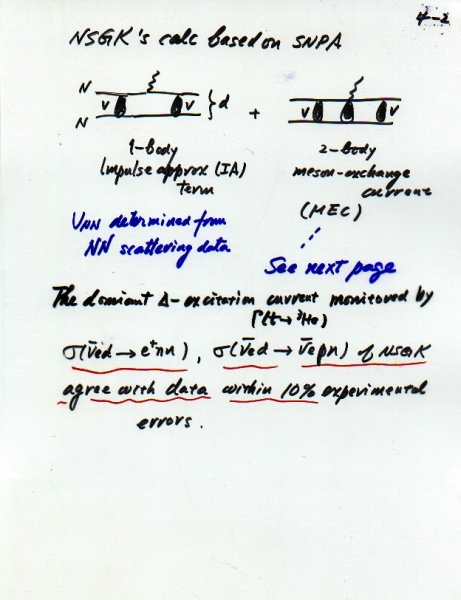 4-2
NSGK's calc based on SNPA
N V V } d + V V
N
1-body 2-body
Impulse approx (IA) meson-exchange
term current
(MEC)
VNN determined from
NN scattering data
See next page
The dominant Δ-excitation current monitored by
Γ(t→³He)
σ(ν̄ed → e⁺nn), σ(ν̄ed → ν̄epn) of NSGK
agree with data within 10% experimental
errors.